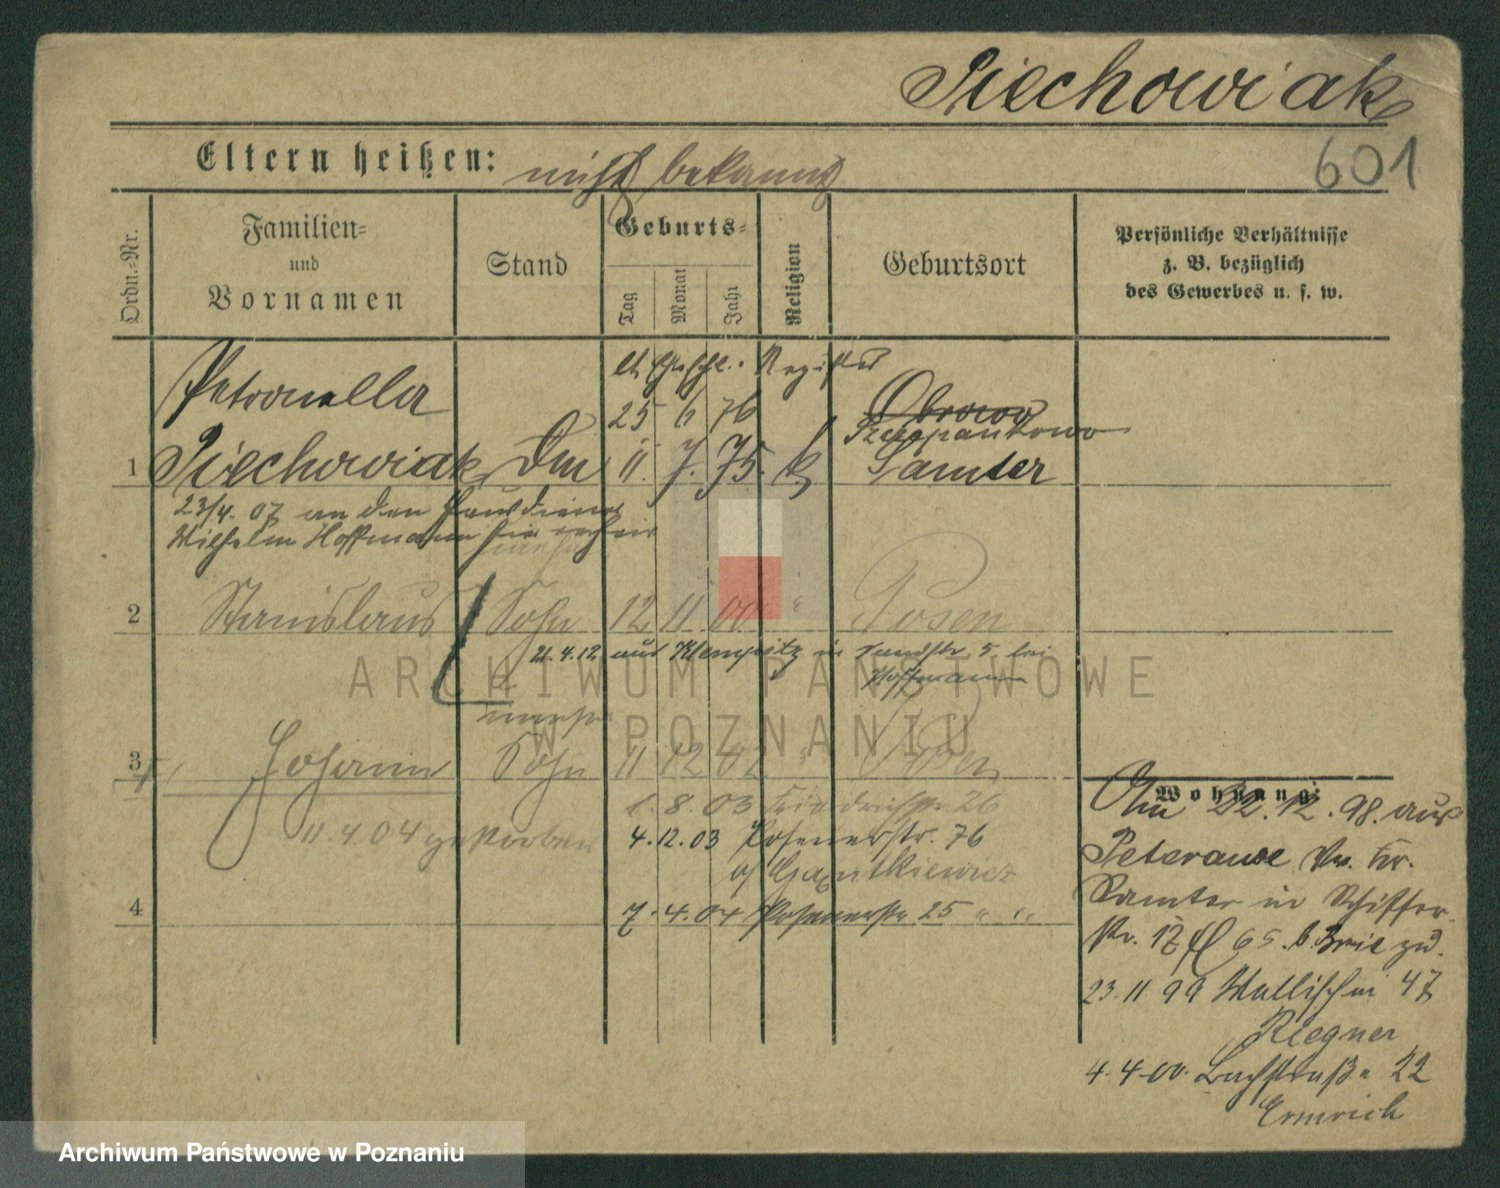 Piechowiak
601
Eltern heißen: nicht bekannt
Ordn.-Nr.
Familien-
und
Vornamen
Stand
Geburts-
Tag
Monat
Jahr
Religion
Geburtsort
Persönliche Verhältnisse
z. B. bezüglich
des Gewerbes u. s. w.
Petronella
lt. Register
25 6 76
Obrowo
Szczepankowo
1 Piechowiak 11. 7. 75. k Samter
23/4. 07 an den Hausdiener
Wilhelm Hoffmann
2 Stanislaus Sohn 12 11 00 " Posen
21.4.12 aus in 5. bei
Hoffmann
unehe
3 Johann Sohn 11 12 02 " Posen
11.4.04 gestorben
1. 8. 03 Friedrichstr 26
4. 12. 03 Posenerstr. 76
4
7. 4. 04 Posenerstr 25 " "
Wohnung:
Am 22.12.98. aus
Peterawe Kr.
Samter in Schiffer
str. 17 65. b.
23 11 99 Wallischei 47
Riegner
4. 4. 00. Bachstraße 22
Emrich
ARCHIWUM PAŃSTWOWE
W POZNANIU
Archiwum Państwowe w Poznaniu